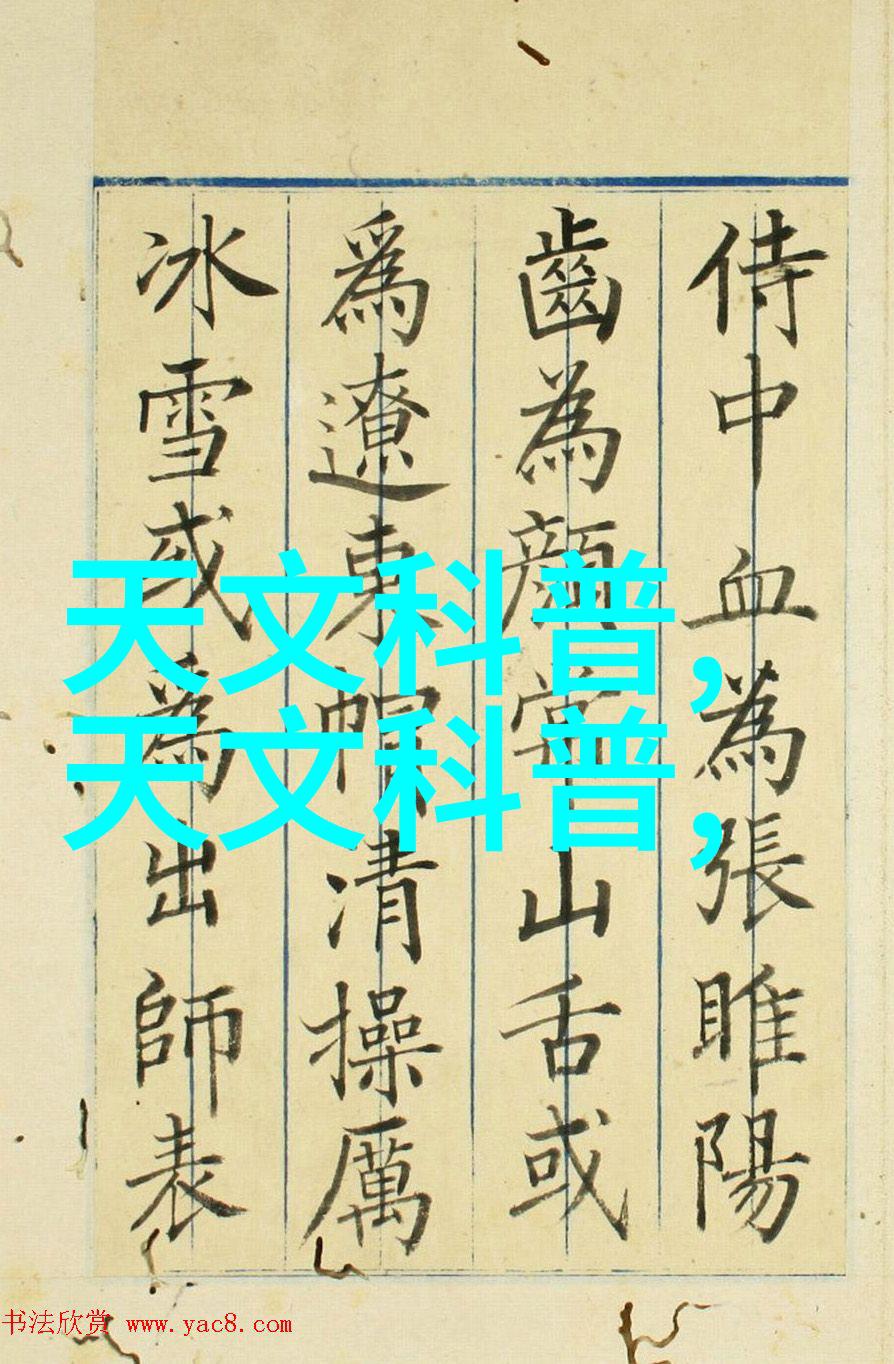 侍中血為張睢陽
齒為顔常山舌或
爲遼東帽清操厲
冰雪或為出師表
天文科普,
天文科普,
书法欣赏 www.yac8.com